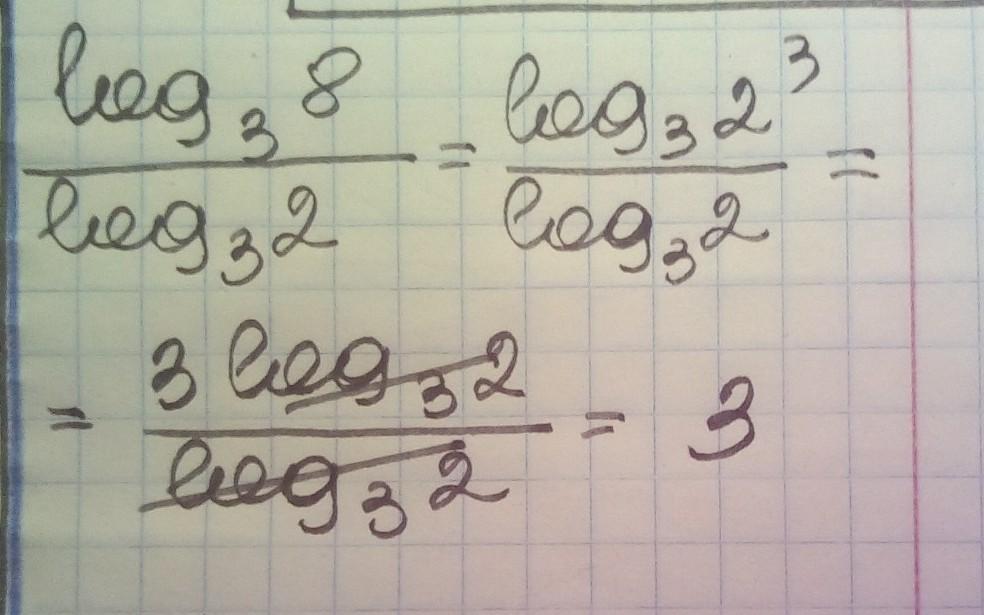 log₃ 8 / log₃ 2 = log₃ 2³ / log₃ 2 =
= 3 log₃ 2 / log₃ 2 = 3